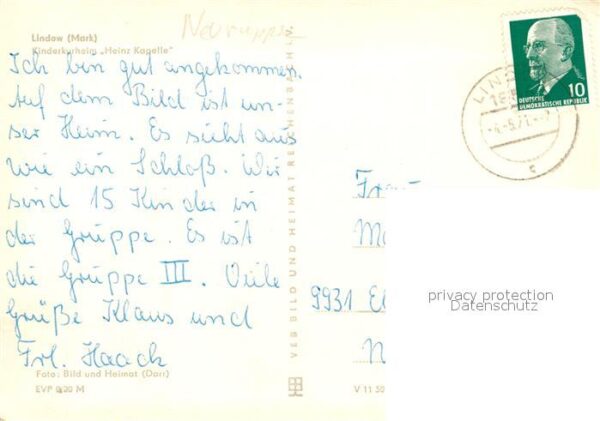 Lindow (Mark)
Kinderkurheim „Heinz Kapelle"
Neuruppin
Ich bin gut angekommen.
Auf dem Bild ist un-
ser Heim. Es sieht aus
wie ein Schloß. Wir
sind 15 Kinder in
der Gruppe. Es ist
die Gruppe III. Viele
Grüße Klaus und
Frl. Haack
Foto: Bild und Heimat (Darr)
EVP 0,20 M
VEB BILD UND HEIMAT REICHENBACH I. V.
V 11 50
10
DEUTSCHE
DEMOKRATISCHE REPUBLIK
LIND
c
9931 
privacy protection
Datenschutz